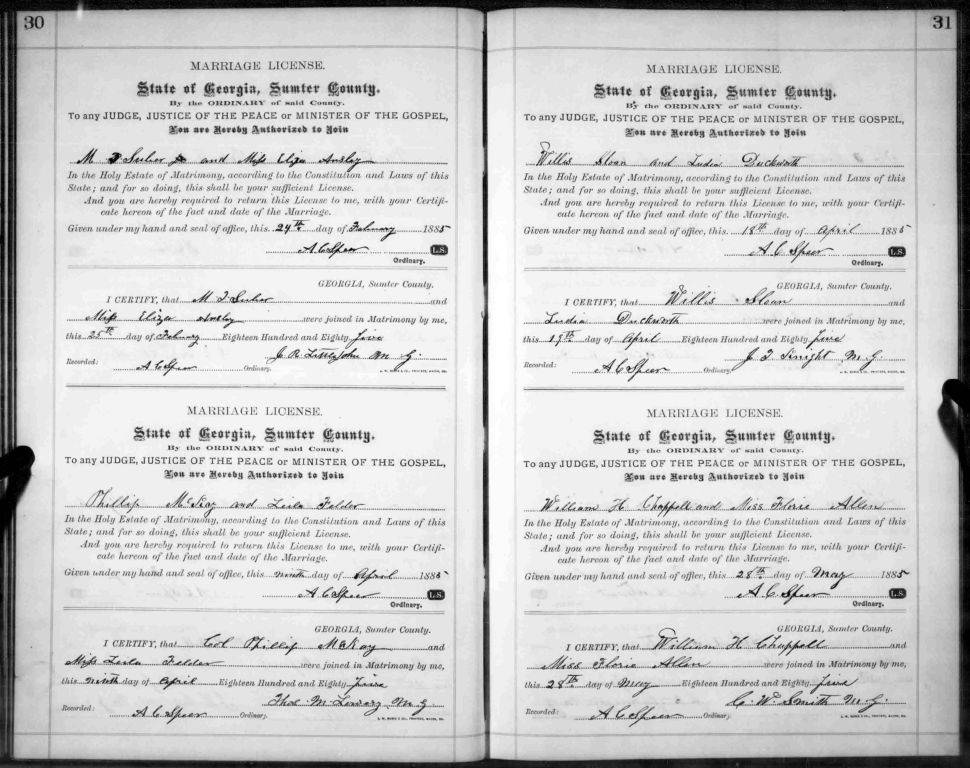 30
MARRIAGE LICENSE.
State of Georgia, Sumter County.
By the ORDINARY of said County.
To any JUDGE, JUSTICE OF THE PEACE or MINISTER OF THE GOSPEL,
You are Hereby Authorized to Join
M and Miss Eliza Ansley
In the Holy Estate of Matrimony, according to the Constitution and Laws of this
State; and for so doing, this shall be your sufficient License.
And you are hereby required to return this License to me, with your Certifi-
cate hereon of the fact and date of the Marriage.
Given under my hand and seal of office, this 24th day of February 1885
A C Speer L.S.
Ordinary.
GEORGIA, Sumter County.
I CERTIFY, that M and
Miss Eliza Ansley were joined in Matrimony by me,
this 25th day of Eighteen Hundred and Eighty five
J. R. Littlejohn M G.
Recorded: A C Speer Ordinary.
MARRIAGE LICENSE.
State of Georgia, Sumter County.
By the ORDINARY of said County.
To any JUDGE, JUSTICE OF THE PEACE or MINISTER OF THE GOSPEL,
You are Hereby Authorized to Join
Phillip McKay and Leila Felder
In the Holy Estate of Matrimony, according to the Constitution and Laws of this
State; and for so doing, this shall be your sufficient License.
And you are hereby required to return this License to me, with your Certifi-
cate hereon of the fact and date of the Marriage.
Given under my hand and seal of office, this ninth day of April 1885
A C Speer L.S.
Ordinary.
GEORGIA, Sumter County.
I CERTIFY, that Col Phillip McKay and
Miss Leila Felder were joined in Matrimony by me,
this ninth day of April Eighteen Hundred and Eighty five
Thos M. Lowery M G
Recorded: A C Speer Ordinary.
31
MARRIAGE LICENSE.
State of Georgia, Sumter County.
By the ORDINARY of said County.
To any JUDGE, JUSTICE OF THE PEACE or MINISTER OF THE GOSPEL,
You are Hereby Authorized to Join
Willis Sloan and Ludia Duckworth
In the Holy Estate of Matrimony, according to the Constitution and Laws of this
State; and for so doing, this shall be your sufficient License.
And you are hereby required to return this License to me, with your Certifi-
cate hereon of the fact and date of the Marriage.
Given under my hand and seal of office, this 18th day of April 1885
A C Speer L.S.
Ordinary.
GEORGIA, Sumter County.
I CERTIFY, that Willis Sloan and
Ludia Duckworth were joined in Matrimony by me,
this day of April Eighteen Hundred and Eighty five
Knight M. G.
Recorded: A C Speer Ordinary.
MARRIAGE LICENSE.
State of Georgia, Sumter County.
By the ORDINARY of said County.
To any JUDGE, JUSTICE OF THE PEACE or MINISTER OF THE GOSPEL,
You are Hereby Authorized to Join
William H Chappell and Miss Florie Allen
In the Holy Estate of Matrimony, according to the Constitution and Laws of this
State; and for so doing, this shall be your sufficient License.
And you are hereby required to return this License to me, with your Certifi-
cate hereon of the fact and date of the Marriage.
Given under my hand and seal of office, this 28th day of May 1885
A C Speer L.S.
Ordinary.
GEORGIA, Sumter County.
I CERTIFY, that William H Chappell and
Miss Florie Allen were joined in Matrimony by me,
this 28th day of May Eighteen Hundred and Eighty five
C. W. Smith M. G.
Recorded: A C Speer Ordinary.